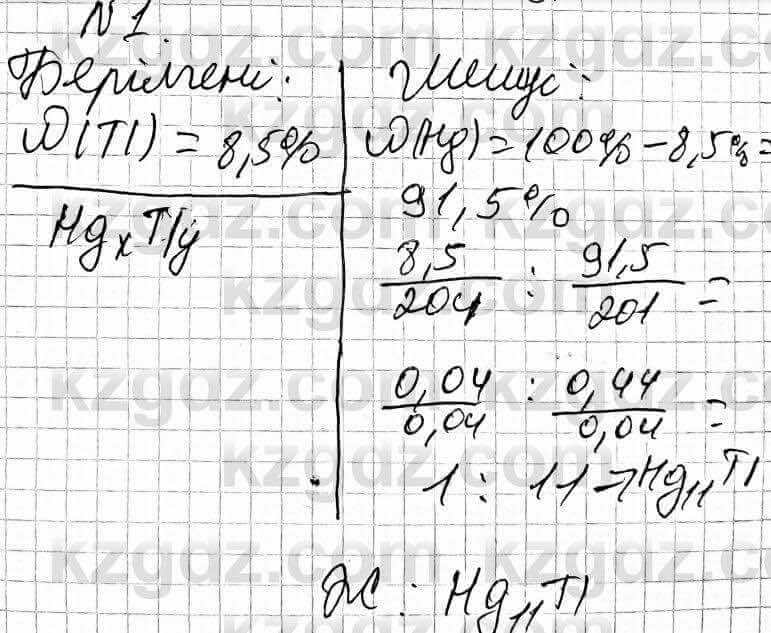 N1.
Берілгені:
ω(Tl) = 8,5%
HgxTly
Шешуі:
ω(Hg) = 100% - 8,5% =
91,5%
8,5/204 : 91,5/201 =
0,04/0,04 : 0,44/0,04 =
1 : 11 → Hg11Tl
Ж: Hg11Tl
kzgdz.com